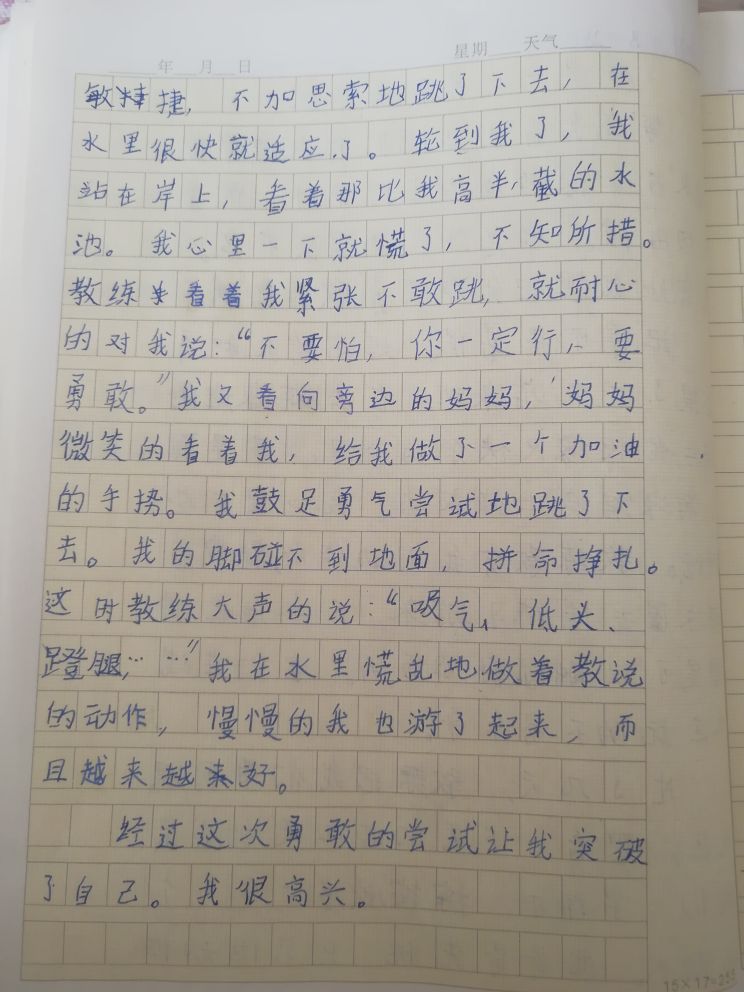 年 月 日 星期 天气
敏捷，不加思索地跳了下去，在
水里很快就适应了。轮到我了，我
站在岸上，看着那比我高半截的水
池。我心里一下就慌了，不知所措。
教练看着我紧张不敢跳，就耐心
的对我说：“不要怕，你一定行，要
勇敢。”我又看向旁边的妈妈，妈妈
微笑的看着我，给我做了一个加油
的手势。我鼓足勇气尝试地跳了下
去。我的脚碰不到地面，拼命挣扎。
这时教练大声的说：“吸气、低头、
蹬腿……”我在水里慌乱地做着教说
的动作，慢慢的我也游了起来，而
且越来越好。
经过这次勇敢的尝试让我突破
了自己。我很高兴。
15×17=255